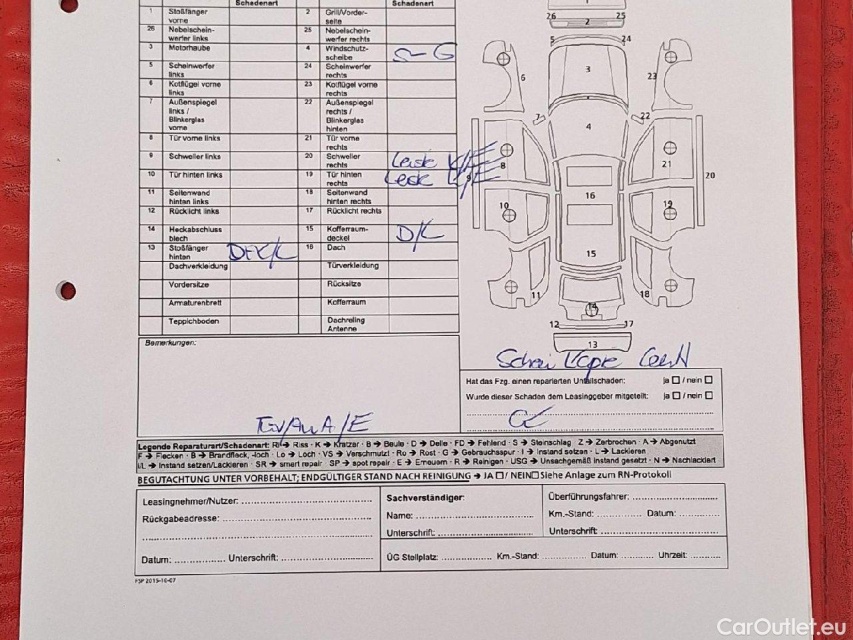 Schadenart
Schadenart
1 Stoßfänger vorne
2 Grill/Vorder-
seite
26 Nebelschein-
werfer links
25 Nebelschein-
werfer rechts
3 Motorhaube
4 Windschutz-
scheibe
S-G
5 Scheinwerfer
links
24 Scheinwerfer
rechts
6 Kotflügel vorne
links
23 Kotflügel vorne
rechts
7 Außenspiegel
links /
Blinkerglas
vorne
22 Außenspiegel
rechts /
Blinkerglas
hinten
8 Tür vorne links
21 Tür vorne
rechts
9 Schweller links
20 Schweller
rechts
K/E
10 Tür hinten links
19 Tür hinten
rechts
11 Seitenwand
hinten links
18 Seitenwand
hinten rechts
12 Rücklicht links
17 Rücklicht rechts
14 Heckabschluss
blech
15 Kofferraum-
deckel
D/L
13 Stoßfänger
hinten
16 Dach
Dachverkleidung
Türverkleidung
Vordersitze
Rücksitze
Armaturenbrett
Kofferraum
Teppichboden
Dachreling
Antenne
26 25
2
5 24
3
6 23
7 22
4
8 21
9 20
16
10 19
15
11 18
14
12 17
13
Bemerkungen:
Hat das Fzg. einen reparierten Unfallschaden: ja / nein
Wurde dieser Schaden dem Leasinggeber mitgeteilt: ja / nein
Legende Reparaturart/Schadenart: RI → Riss · K → Kratzer · B → Beule · D → Delle · FD → Fehlend · S → Steinschlag · Z → Zerbrochen · A → Abgenutzt
F → Flecken · B → Brandfleck, -loch · Lo → Loch · VS → Verschmutzt · Ro → Rost · G → Gebrauchsspur · I → Instand setzen · L → Lackieren
I/L → Instand setzen/Lackieren · SR → smart repair · SP → spot repair · E → Erneuern · R → Reinigen · USG → Unsachgemäß instand gesetzt · N → Nachlackiert
BEGUTACHTUNG UNTER VORBEHALT; ENDGÜLTIGER STAND NACH REINIGUNG → JA / NEIN Siehe Anlage zum RN-Protokoll
Leasingnehmer/Nutzer:
Sachverständiger:
Überführungsfahrer:
Rückgabeadresse:
Name:
Km.-Stand: Datum:
Unterschrift:
Unterschrift:
Datum: Unterschrift:
ÜG Stellplatz: Km.-Stand: Datum: Uhrzeit:
FSP 2015-10-07
CarOutlet.eu